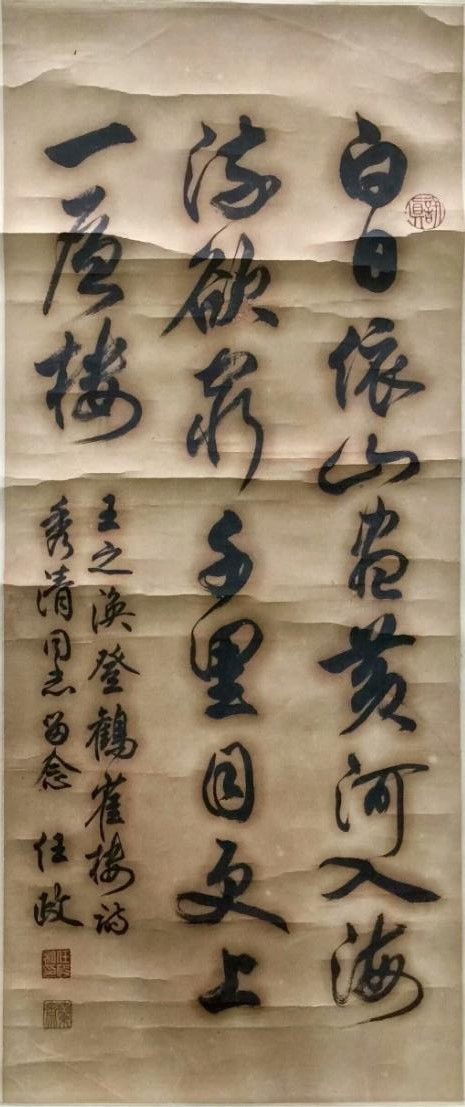 白日依山尽黄河入海
流欲穷千里目更上
一层楼
王之涣登鹳雀楼诗
秀清同志留念 任政